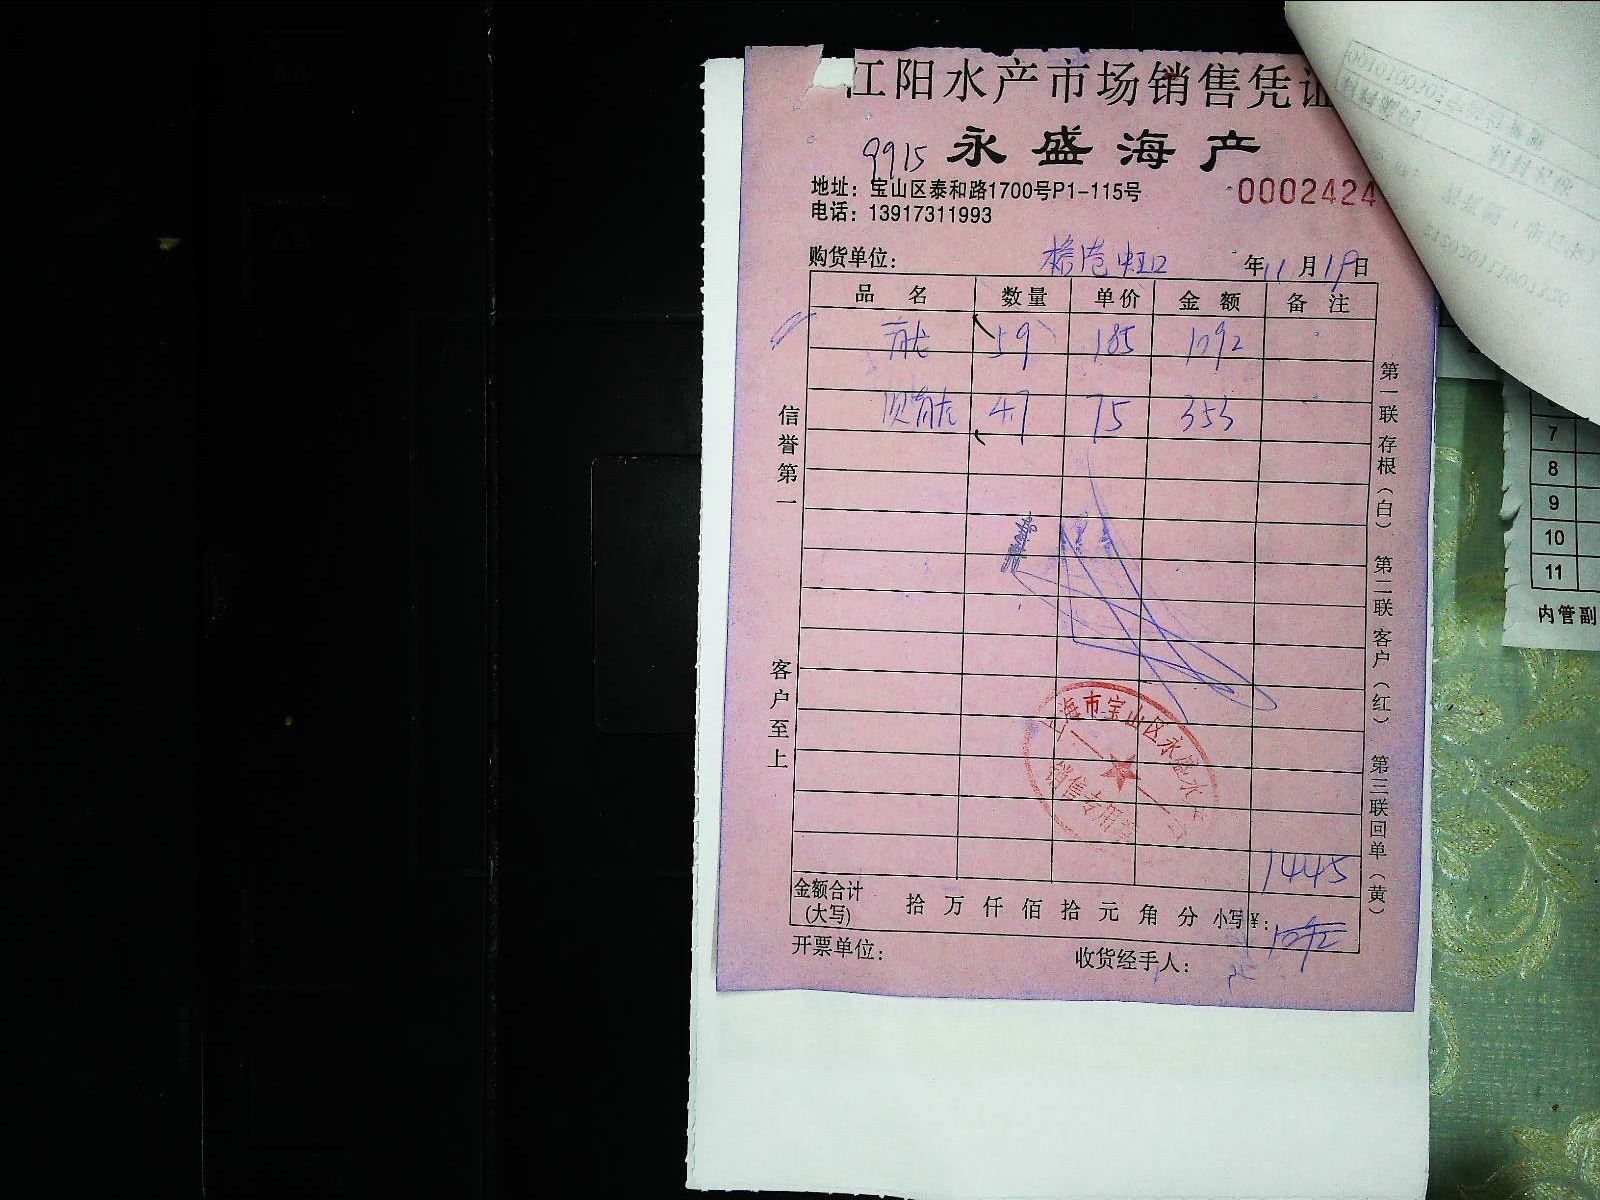 江阳水产市场销售凭证
9915 永盛海产
地址：宝山区泰和路1700号P1-115号
0002424
电话：13917311993
购货单位： 虹口 年11月19日
品名 数量 单价 金额 备注
59 185 1092
47 75 353
信誉第一
客户至上
第一联存根（白） 第二联客户（红） 第三联回单（黄）
上海市宝山区永盛水
销售专用章
1445
金额合计（大写） 拾 万 仟 佰 拾 元 角 分 小写¥： 1092
开票单位： 收货经手人：
7
8
9
10
11
内管副